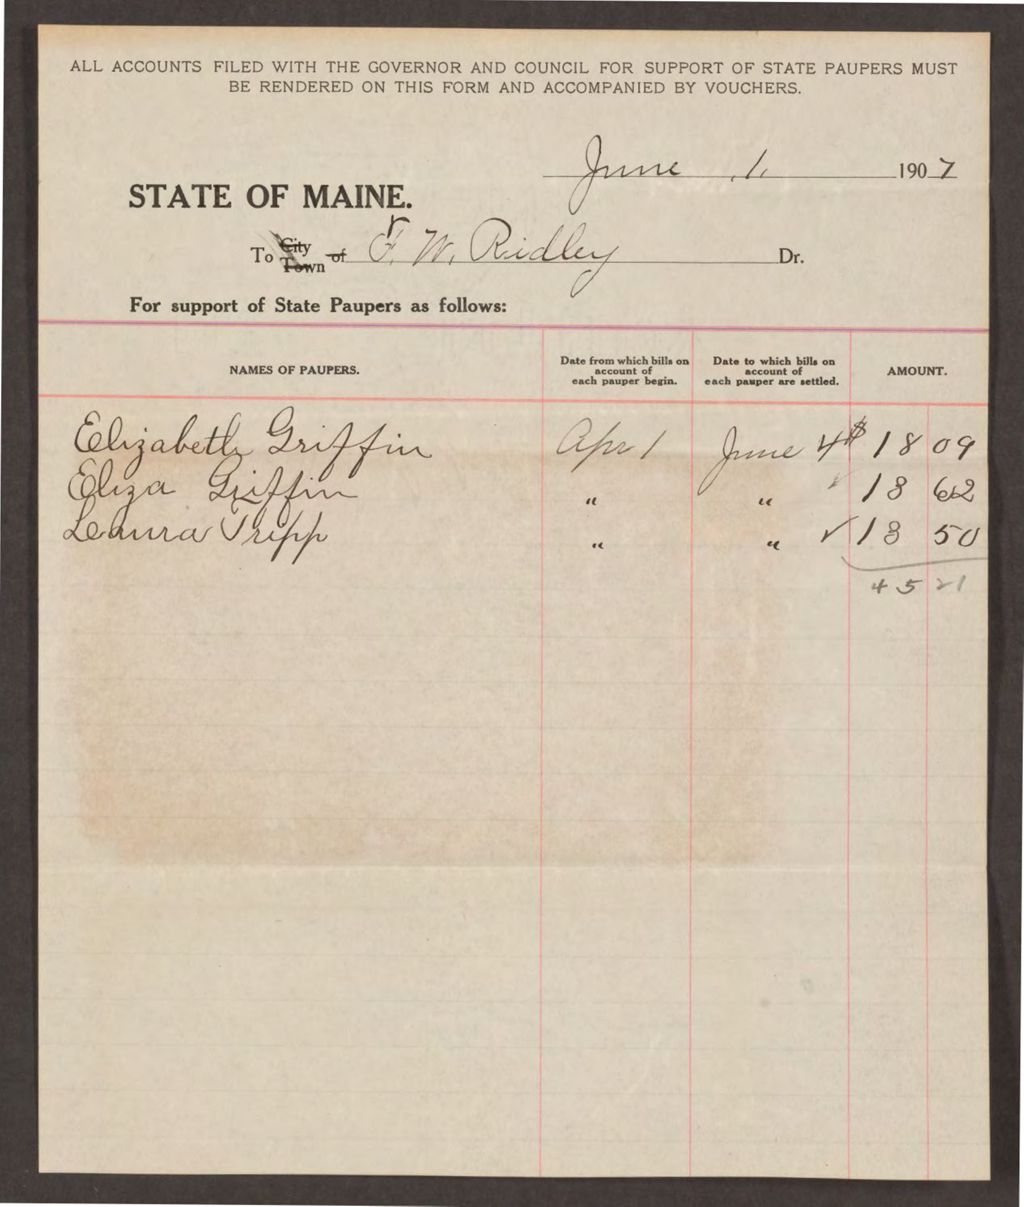 ALL ACCOUNTS FILED WITH THE GOVERNOR AND COUNCIL FOR SUPPORT OF STATE PAUPERS MUST
BE RENDERED ON THIS FORM AND ACCOMPANIED BY VOUCHERS.
June 1, 1907
STATE OF MAINE.
To City Town of F. W. Ridley Dr.
For support of State Paupers as follows:
NAMES OF PAUPERS. Date from which bills on account of each pauper begin. Date to which bills on account of each pauper are settled. AMOUNT.
Elizabeth Griffin Apr 1 June 4 $ 18 09
Eliza Griffin " " ✓ 13 62
Laura Tripp " " ✓ 13 50
45 21